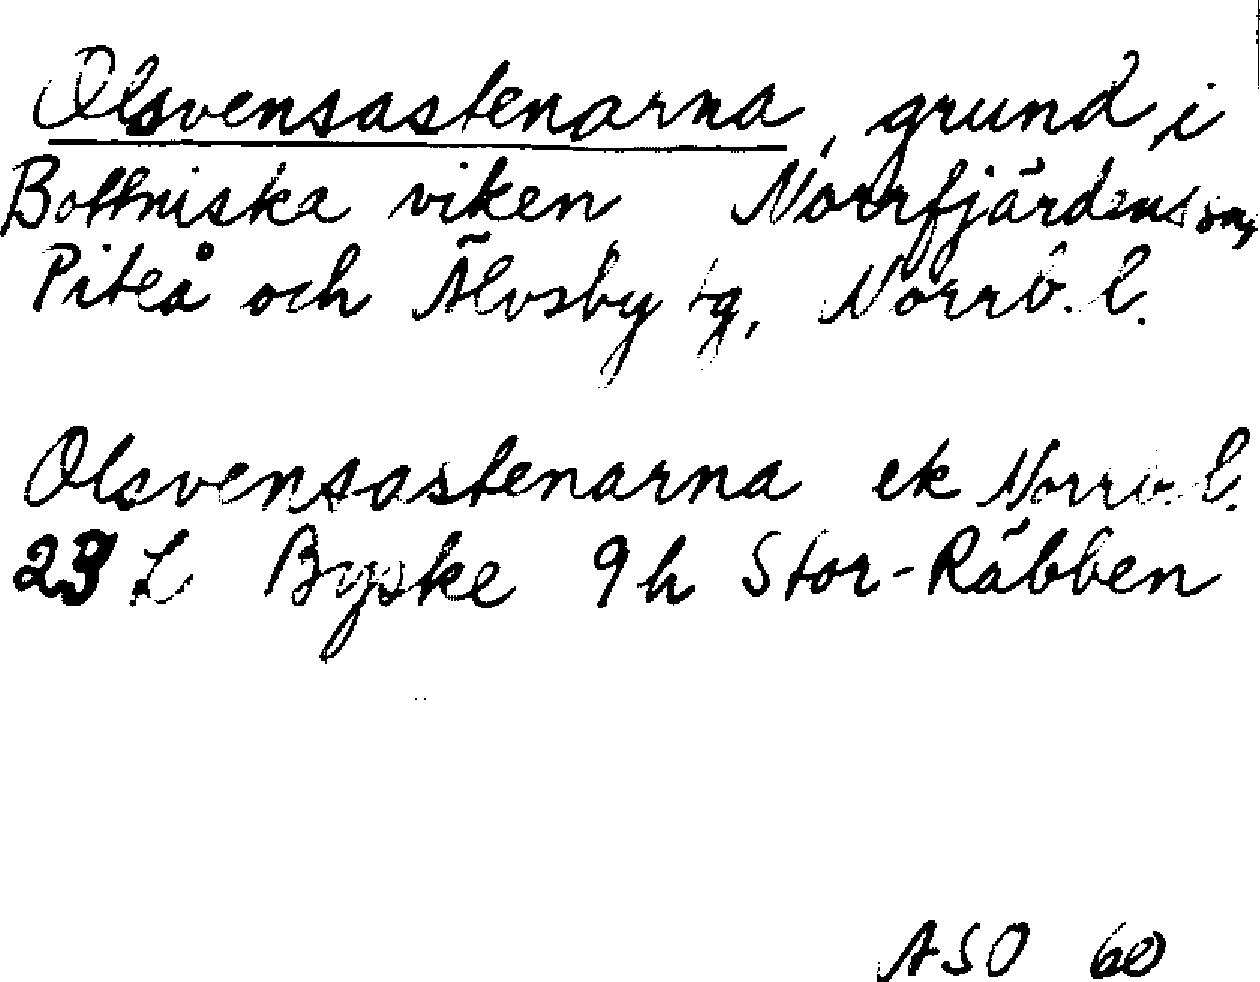 Olsvensastenarna, grund i
Bottniska viken Norrfjärdens sn,
Piteå och Älvsby tg, Norrb. l.
Olsvensastenarna ek Norrb. l.
23 L Byske 9h Stor-Räbben
ASO 60